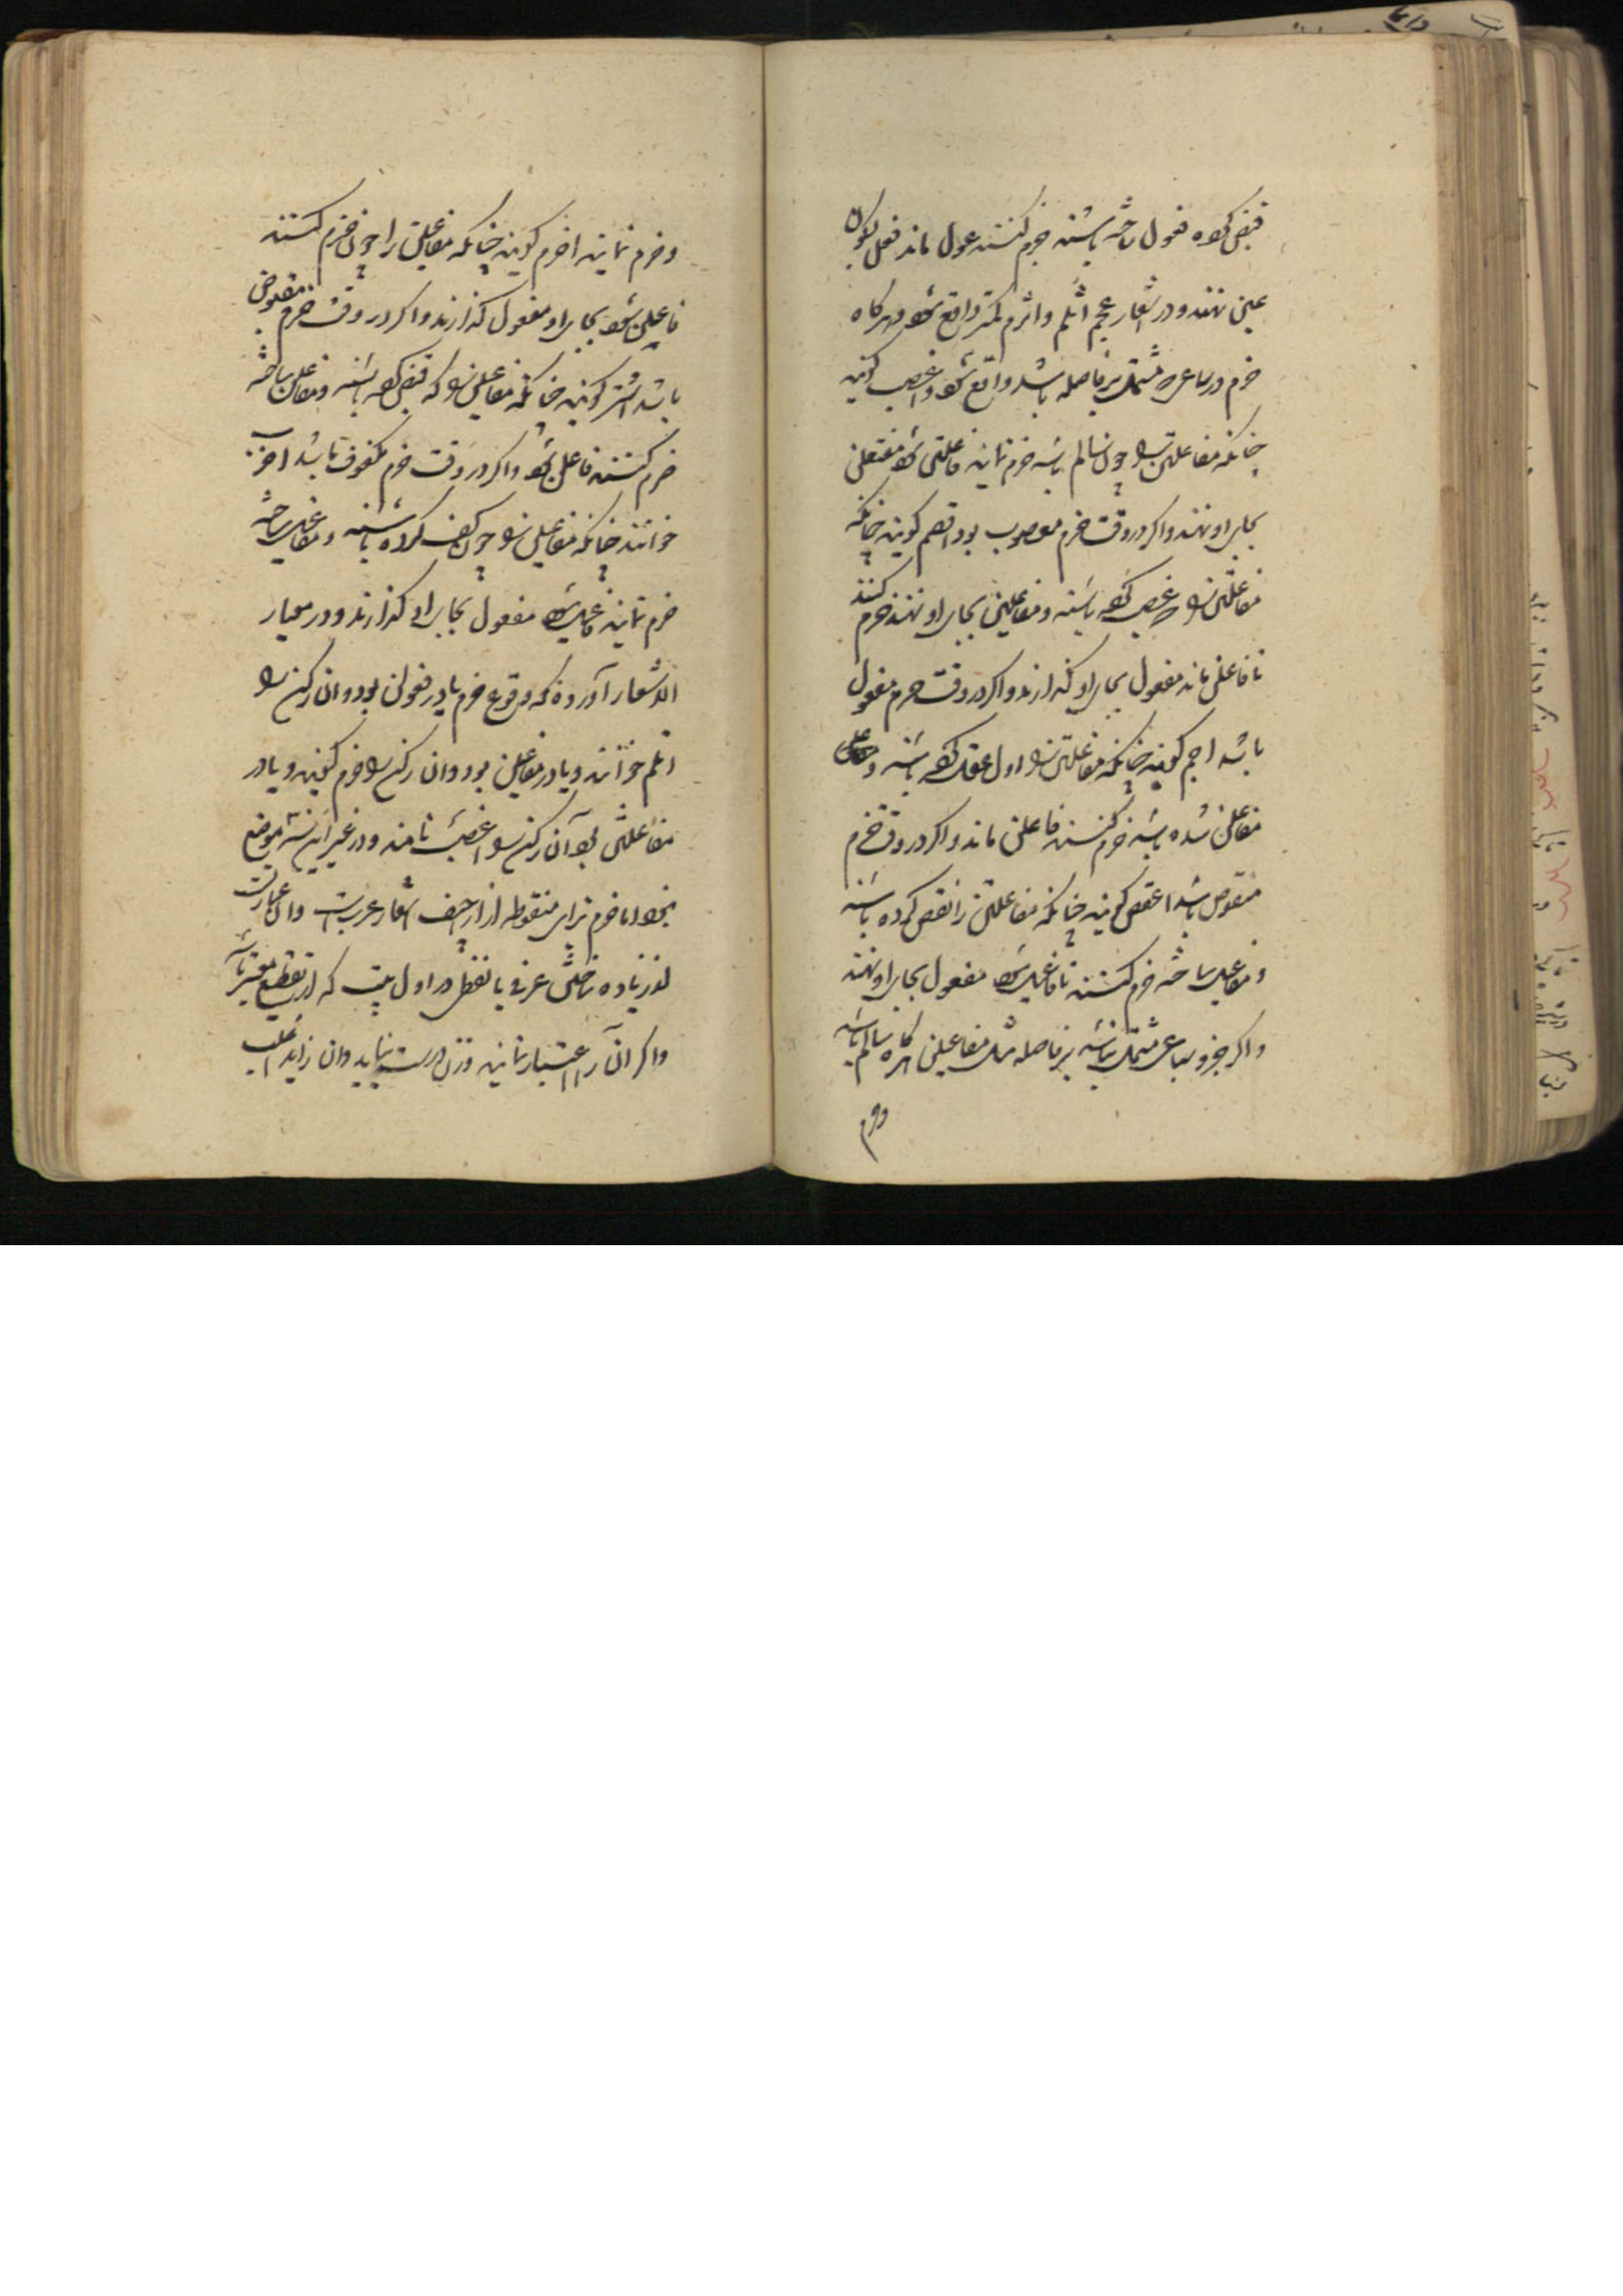 قبض کرده فعول ساخته باشند چو خرم کنند عول ماند فعل بسکون
عین نهند و در اشعار عجم اثلم و اثرم کمتر واقع شود و هرگاه
خرم در سباعی که مشتمل بر فاصله باشد واقع شود اعضب گویند
چنانکه مفاعلتن را چون سالم باشد خرم نمایند فاعلتن شود مفتعلن
بجای او نهند و اگر در وقت خرم معصوب بود اقصم گویند چنانکه
مفاعلتن را عصب کرده باشند و مفاعیلن بجای او نهند خرم کنند
تا فاعیلن ماند مفعولن بجای او گذارند و اگر در وقت خرم معقول
باشد اجم گویند چنانکه مفاعلتن را اول عقل کرده باشند و
مفاعلن شده باشد خرم کنند فاعلن ماند و اگر در وقت خرم
منقوص باشد اعقص گویند چنانکه مفاعلتن را نقص کرده باشند
و مفاعیل ساخته خرم کنند تا فاعیل شود مفعول بجای او نهند
و اگر جزو سباعی مشتمل نباشد بر فاصله مثل مفاعیلن هرگاه سالم باشد
وخرم
وخرم نمایند اخرم گویند چنانکه مفاعیلن را چون خرم کنند
فاعیلن شود بجای او مفعولن گذارند و اگر در وقت خرم مقبوض
باشد اشتر گویند چنانکه مفاعیلن را که قبض کرده باشند و مفاعلن ساخته
خرم کنند فاعلن شود و اگر در وقت خرم مکفوف باشد اخرب
خوانند چنانکه مفاعیلن را چون کف کرده باشند و مفاعیل ساخته
خرم نمایند فاعیل شود مفعول بجای او گذارند و در معیار
الاشعار آورده که وقوع خرم یا در فعولن بود و آن رکن را
اثلم خوانند و یا در مفاعیلن بود و آن رکن را اخرم گویند و یا در
مفاعلتن بود آن رکن را اعضب نامند و در غیر این سه موضع
نبود اما خزم بزای منقوطه از زحاف اشعار عرب است و آن عبارت
از زیاده ساختن حرفی یا لفظی در اول بیت که از تقطیع معتبر نباشد
و اگر آن را اعتبار نمایند وزن درست نیاید و آن زاید اغلب